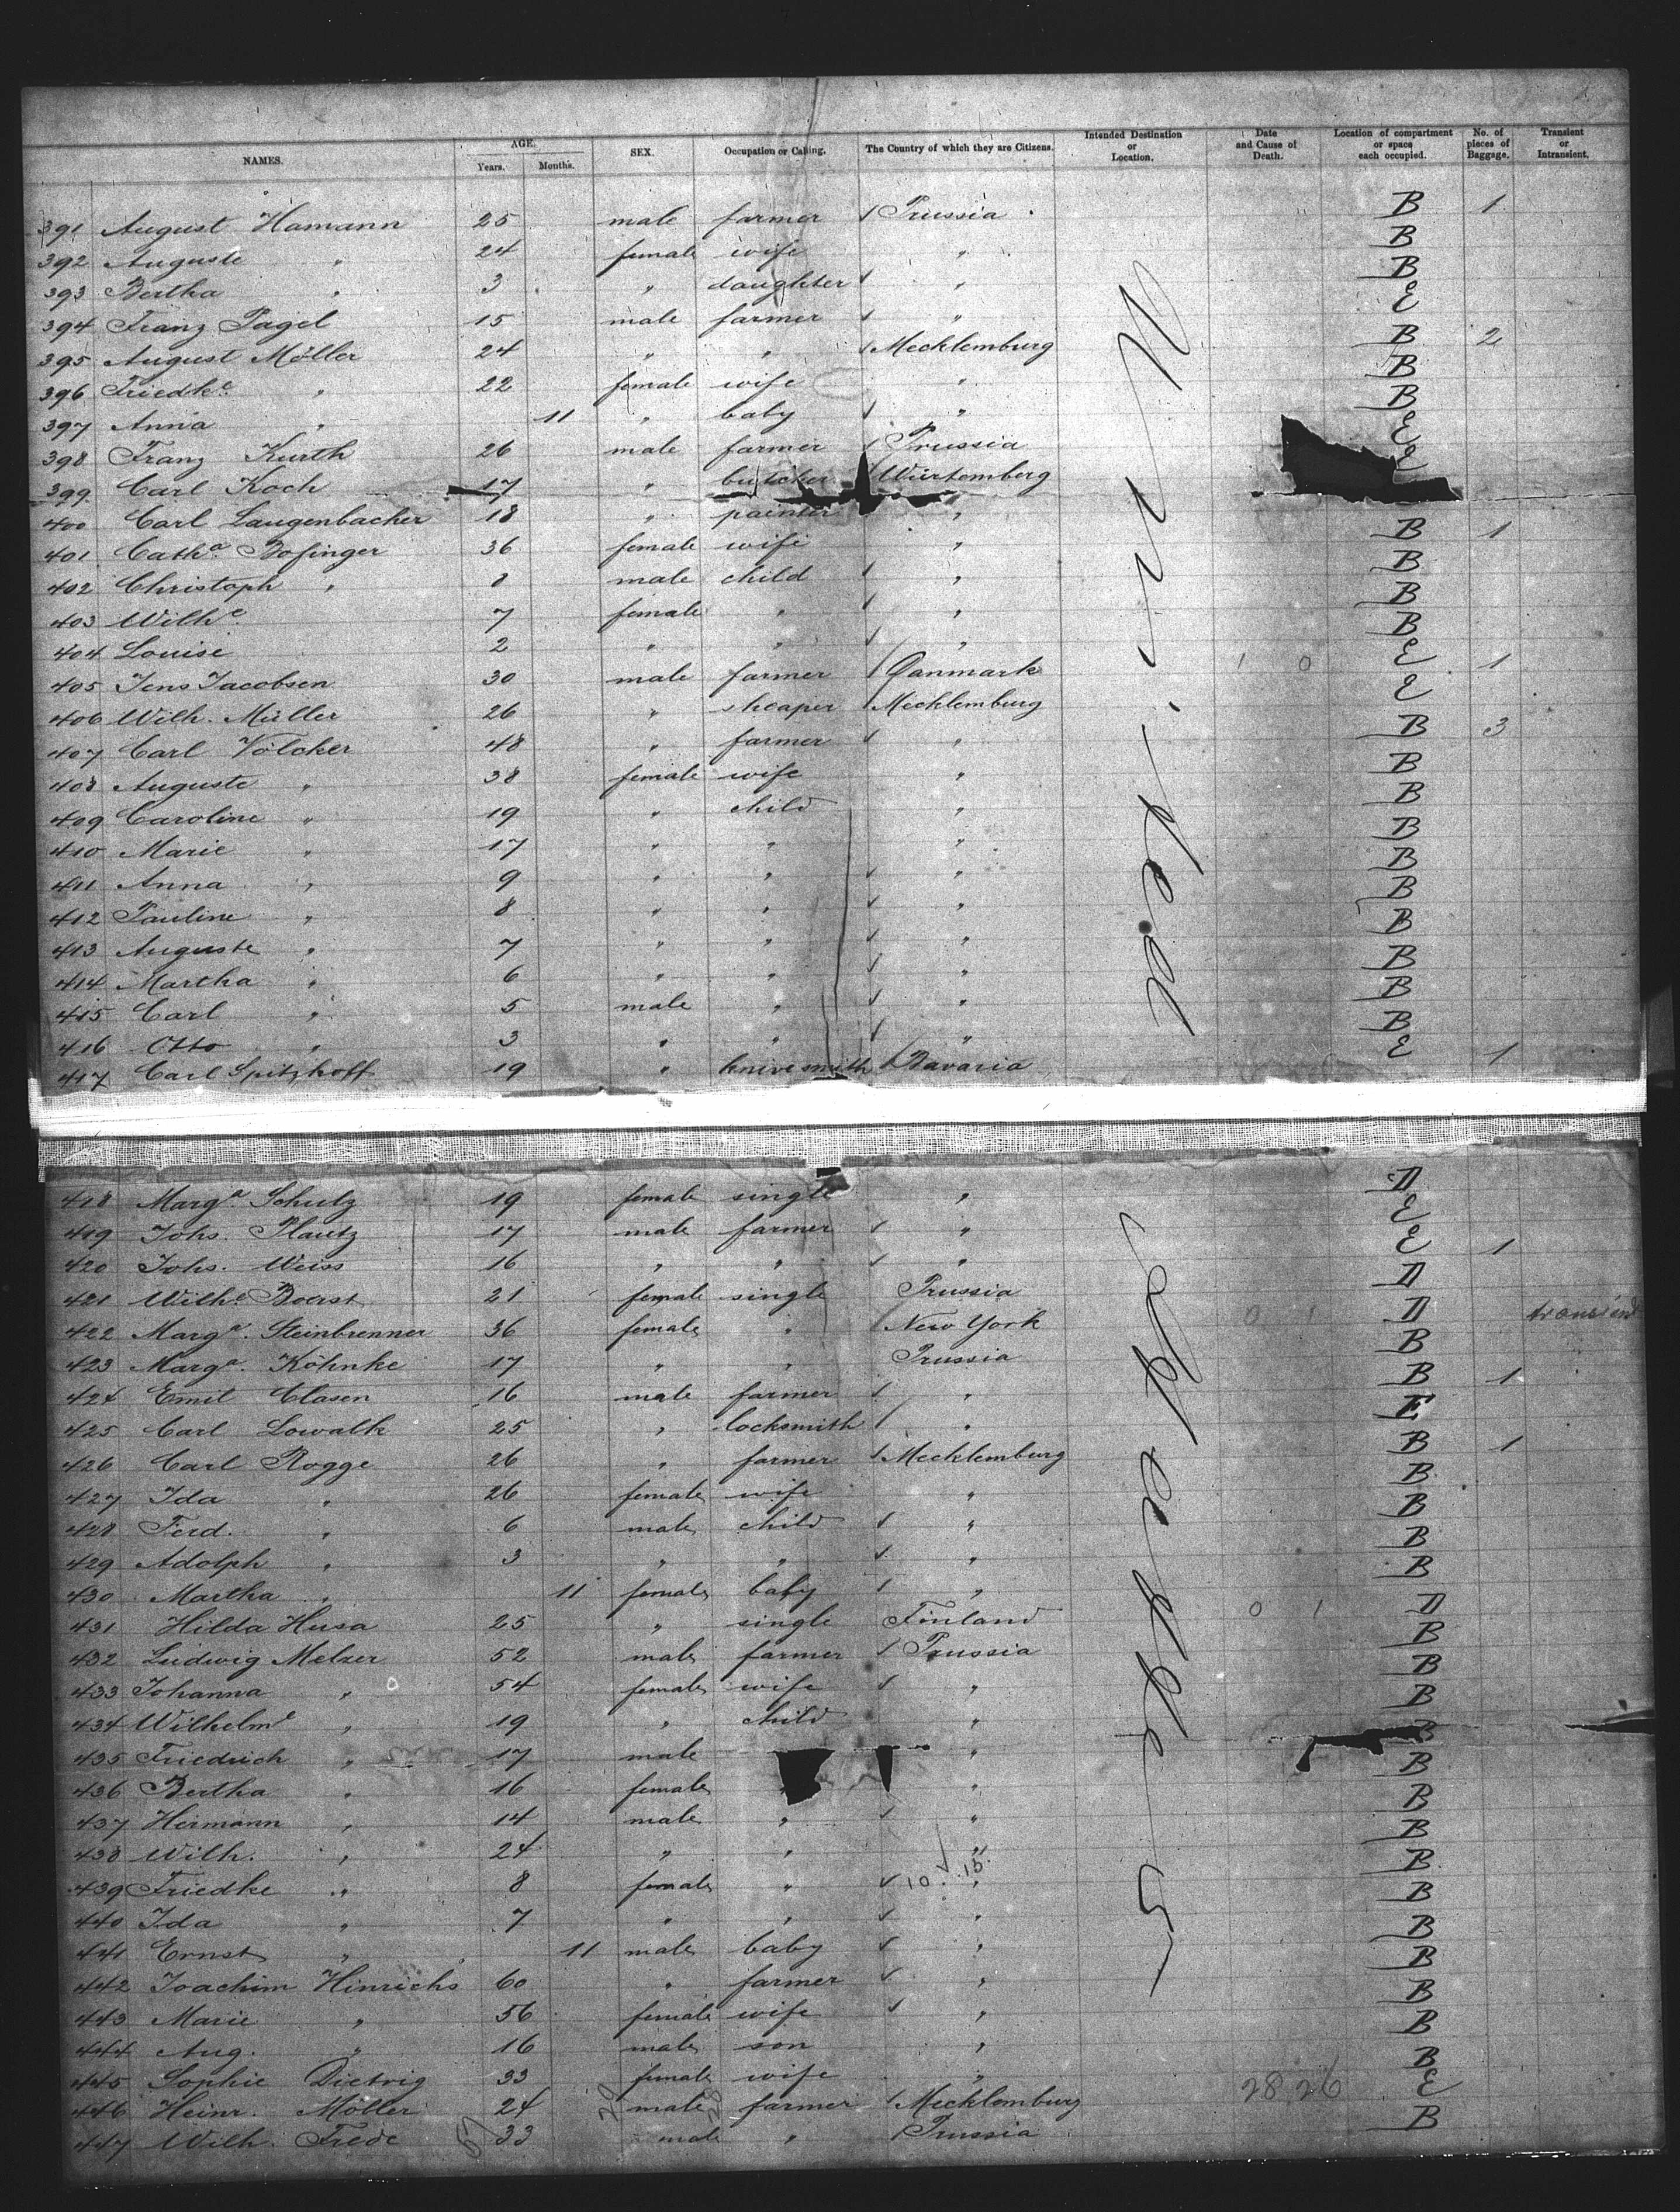 NAMES. AGE. Years. Months. SEX. Occupation or Calling. The Country of which they are Citizens. Intended Destination or Location. Date and Cause of Death. Location of compartment or space each occupied. No. of pieces of Baggage. Transient or Intransient.
391 August Hamann 25 male farmer Prussia B 1
392 Auguste " 24 female wife " B
393 Bertha " 3 " daughter " B
394 Franz Pagel 15 male farmer " E
395 August Möller 24 " " Mecklemburg B 2
396 Friedke. " 22 female wife " B
397 Anna " 11 " baby " B
398 Franz Kurth 26 male farmer Prussia E
399 Carl Koch 17 " butcher Würtemberg E
400 Carl Laugenbacher 18 " painter "
401 Catha. Bofinger 36 female wife " B 1
402 Christoph " 8 male child " B
403 Wilhe. 7 female " " B
404 Louise 2 " " " B
405 Jens Jacobsen 30 male farmer Danmark 1 0 E 1
406 Wilh. Müller 26 " sheaper Mecklemburg E
407 Carl Völcker 48 " farmer " B 3
408 Auguste " 38 female wife " B
409 Caroline " 19 " child " B
410 Marie " 17 " " " B
411 Anna " 9 " " " B
412 Pauline " 8 " " " B
413 Auguste " 7 " " " B
414 Martha " 6 " " " B
415 Carl " 5 male " " B
416 Otto " 3 " " " B
417 Carl Spitzhoff 19 " knivesmith Bavaria E 1
418 Marga. Schulz 19 female single " D
419 Johs. Plautz 17 male farmer " E
420 Johs. Weiss 16 " " " E 1
421 Wilhe. Boerst 21 female single Prussia D
422 Marga. Steinbrenner 36 female " New York 0 1 D transient
423 Marga. Köhnke 17 " " Prussia B
424 Emil Clasen 16 male farmer " B 1
425 Carl Lowalk 25 " locksmith " E
426 Carl Rogge 26 " farmer Mecklemburg B 1
427 Ida " 26 female wife " B
428 Ferd. " 6 male child " B
429 Adolph " 3 " " " B
430 Martha " 11 female baby " B
431 Hilda Husa 25 " single Finland 0 1 D
432 Ludwig Melzer 52 male farmer Prussia B
433 Johanna " 54 female wife " B
434 Wilhelme " 19 " child " B
435 Friedrich " 17 male " B
436 Bertha " 16 female " " B
437 Hermann " 14 male " " B
438 Wilh. " 24 " " " B
439 Friedke " 8 female " 10 15 " B
440 Ida " 7 " " " B
441 Ernst " 11 male baby " B
442 Joachim Hinrichs 60 " farmer " B
443 Marie " 56 female wife " B
444 Aug. " 16 male son " B
445 Sophie Dietrig 33 female wife " B
446 Heinr. Möller 24 male farmer Mecklemburg 28 26 E
447 Wilh. Frede 33 male " Prussia B